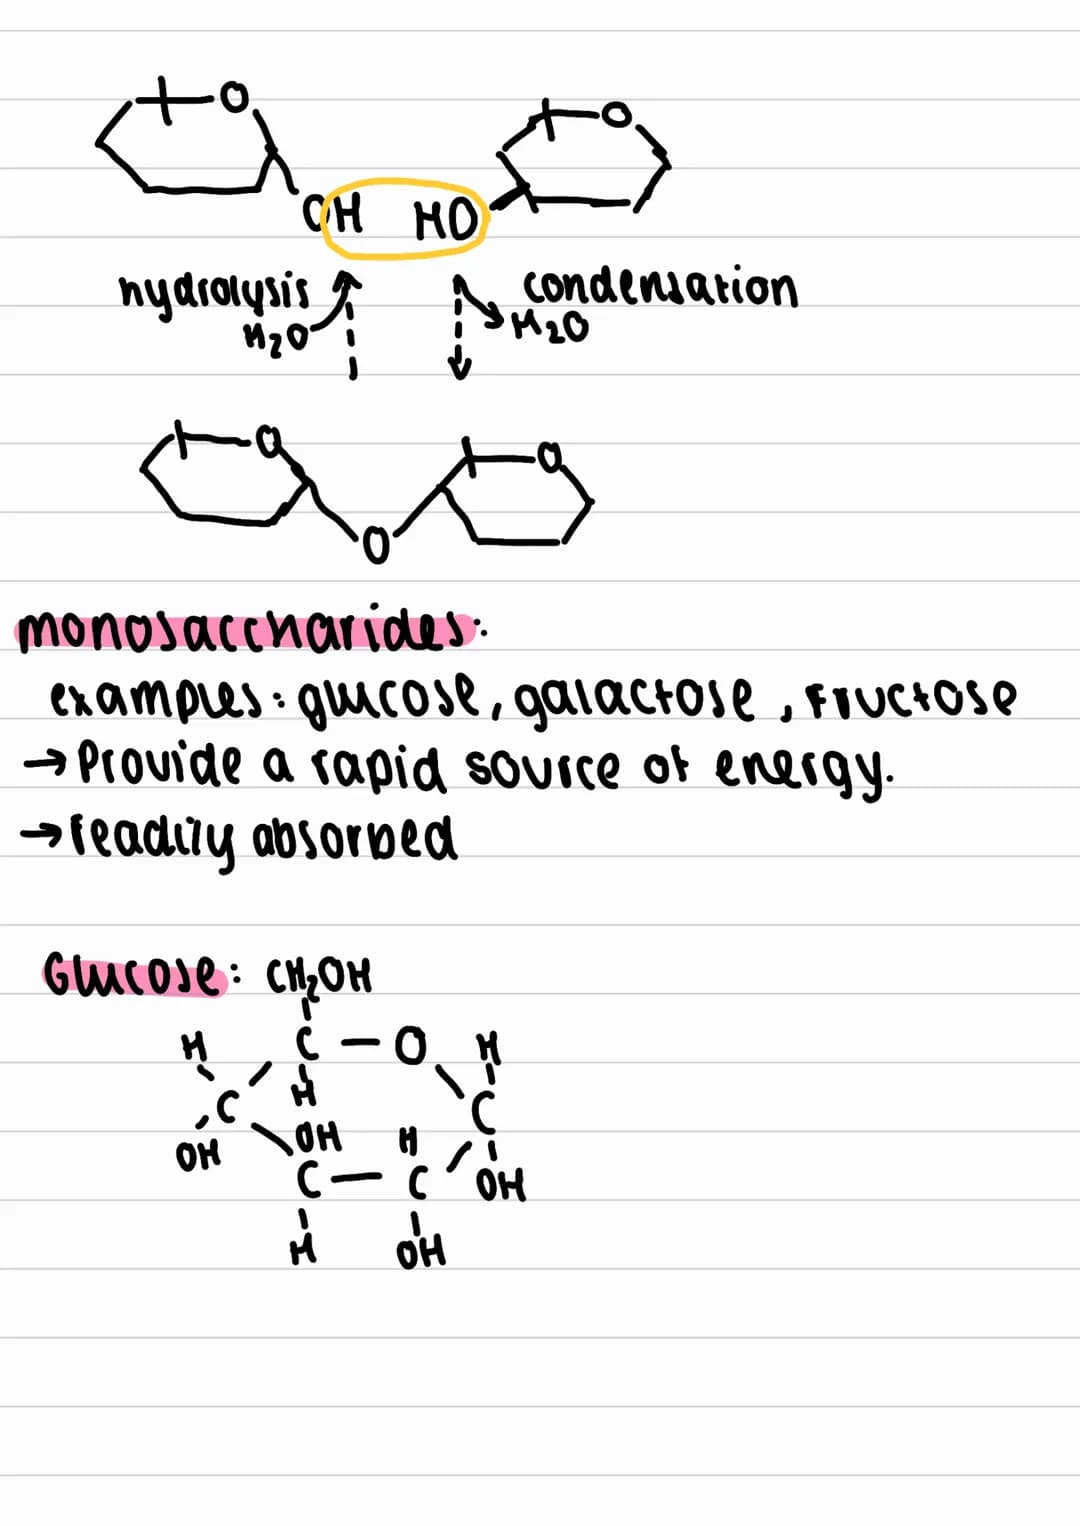 O O
OH HO
hydrolysis condensation
H2O H2O
O O
O
monosaccharides:
examples: glucose, galactose, fructose
→ Provide a rapid source of energy.
→ readily absorbed
Glucose: CH2OH
H C - O H
C H C
OH OH H
C - C OH
H OH